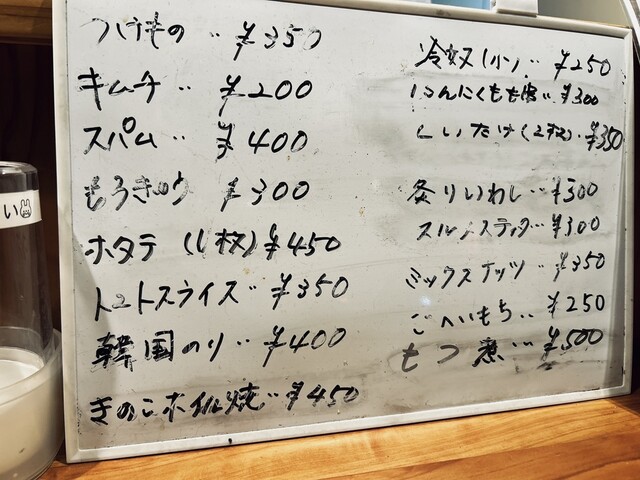 つけもの‥¥350
キムチ‥¥200
スパム‥¥400
もろきゅう ¥300
ホタテ(1枚)¥450
トマトスライス‥¥350
韓国のり‥¥400
きのこホイル焼‥¥450
冷奴(小)‥¥250
にんにくもも ‥¥300
しいたけ(2枚)‥¥350
炙りいわし‥¥300
スルメスティック‥¥300
ミックスナッツ‥¥350
ごへいもち‥¥250
もつ煮‥¥500
い